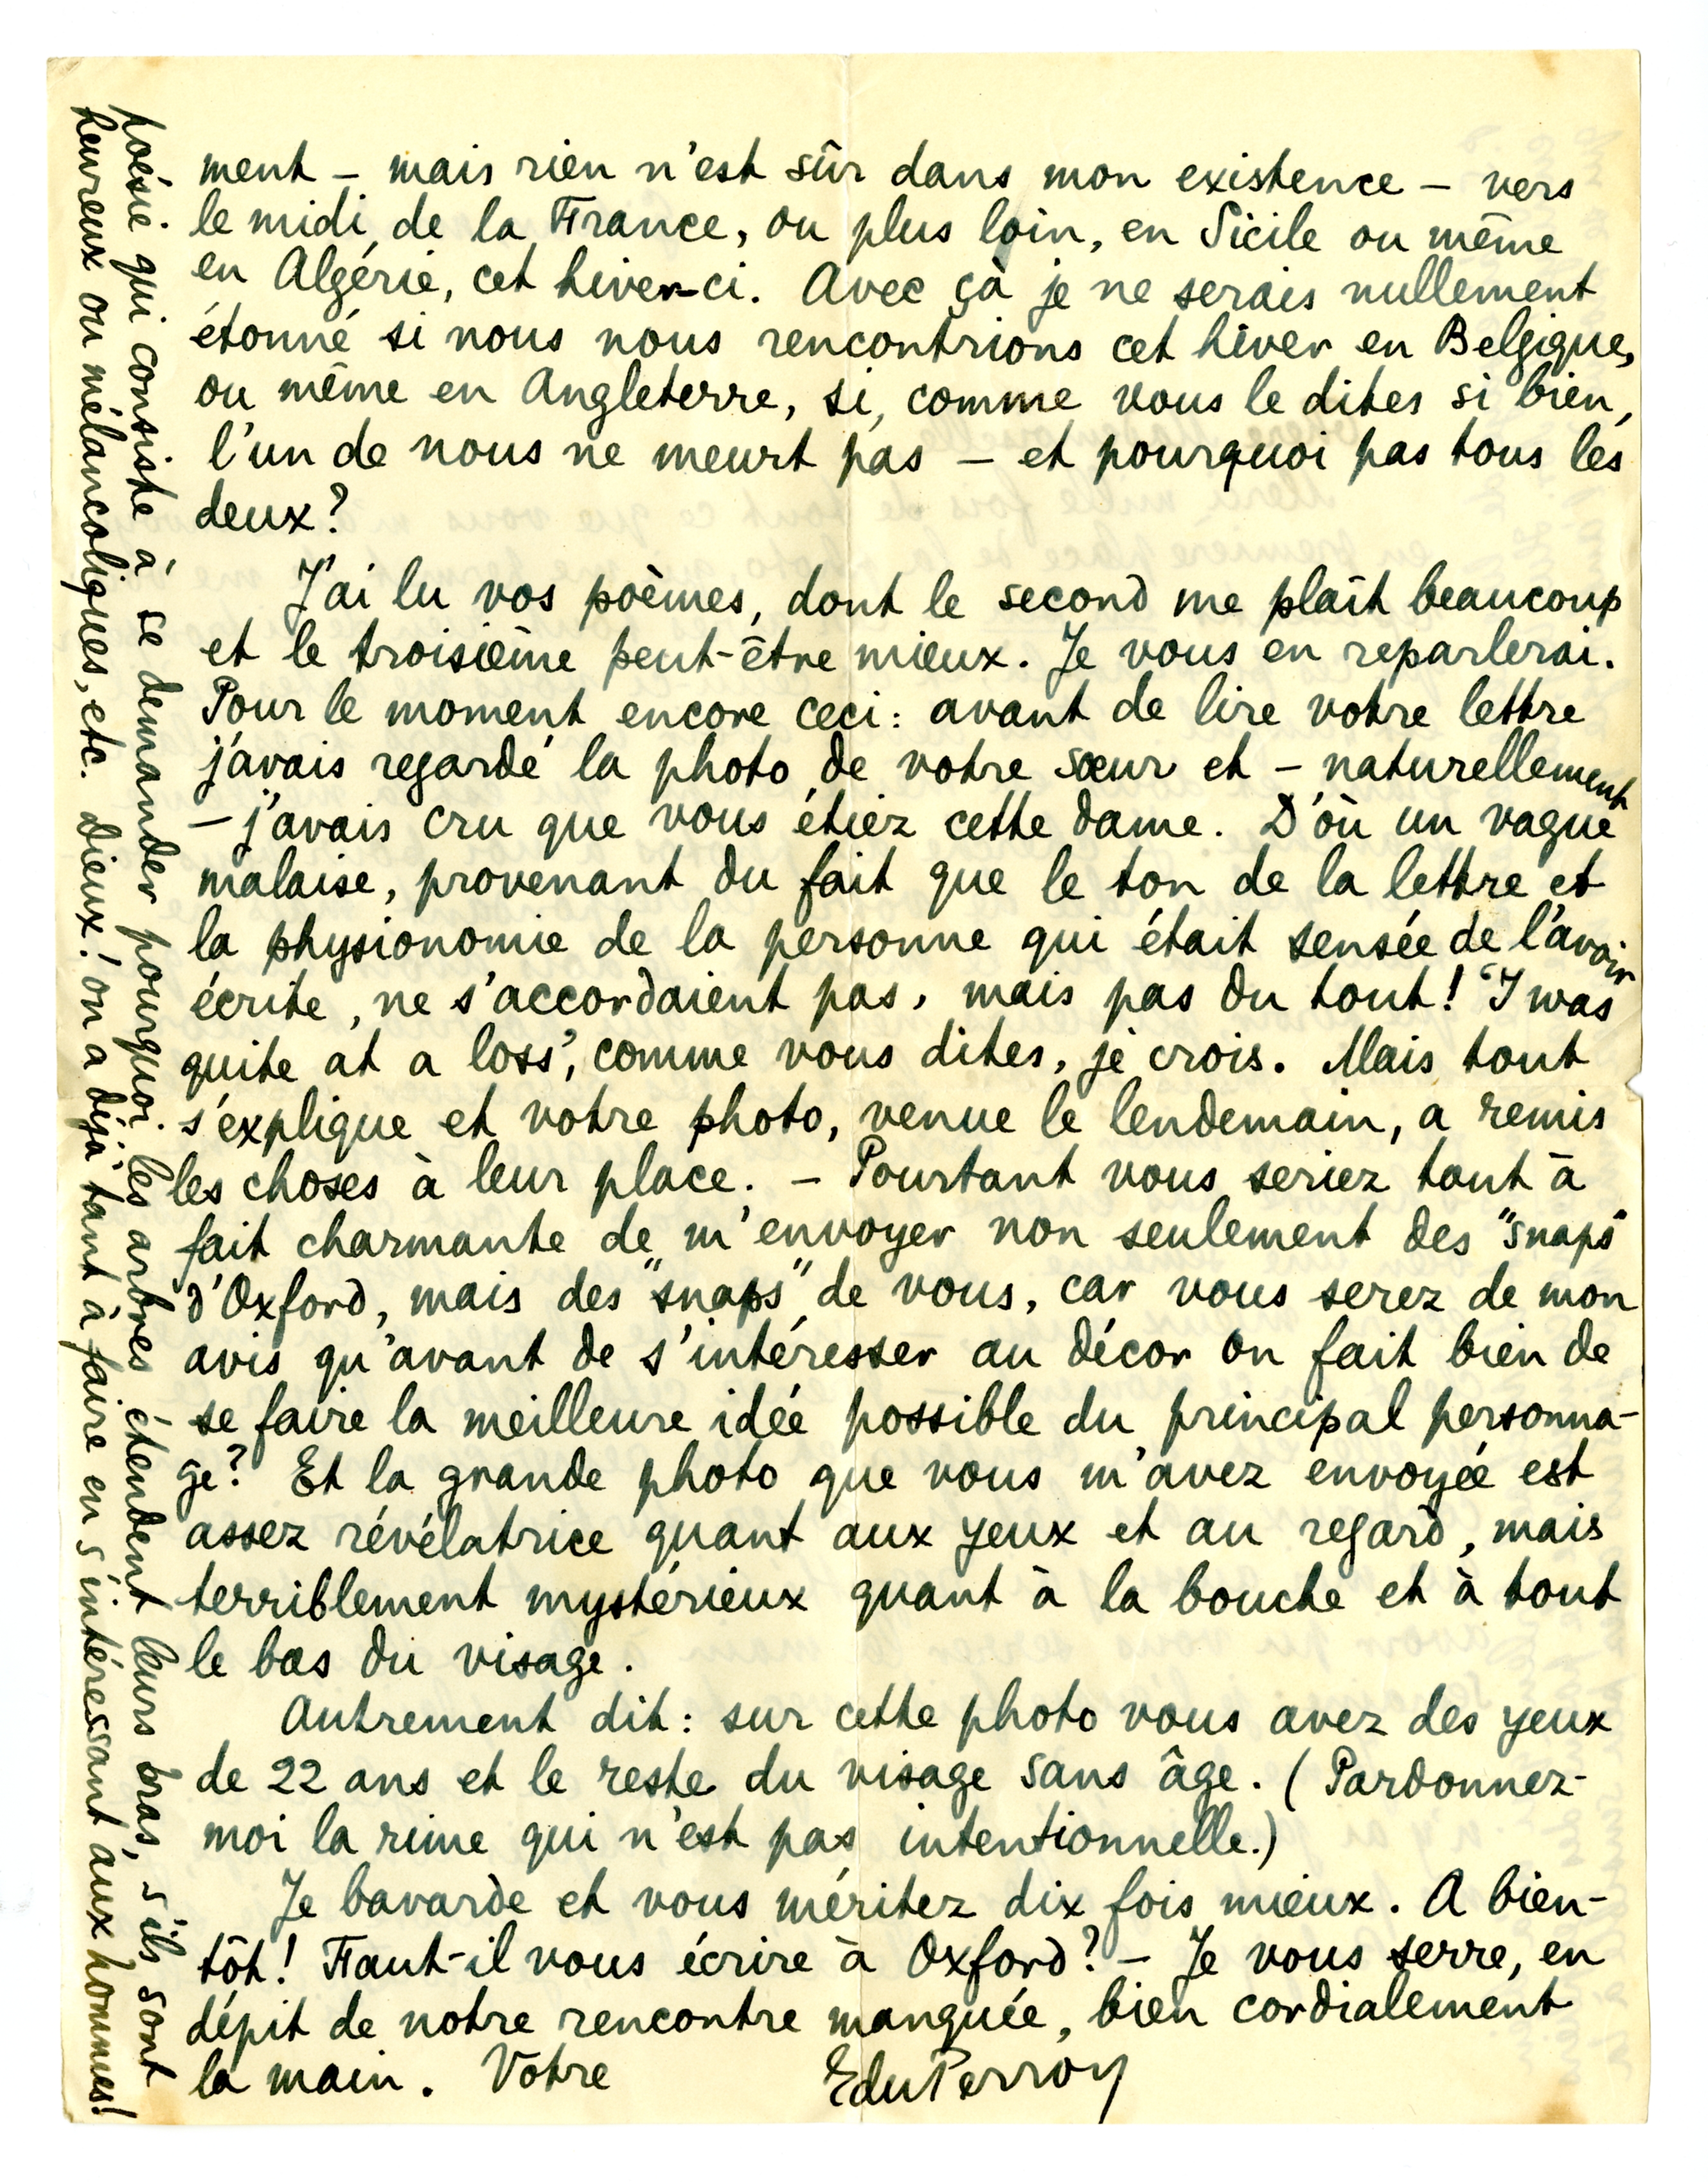 ment – mais rien n'est sûr dans mon existence – vers
le midi de la France, ou plus loin, en Sicile ou même
en Algérie, cet hiver-ci. Avec çà je ne serais nullement
étonné si nous nous rencontrions cet hiver en Belgique,
ou même en Angleterre, si, comme vous le dites si bien,
l'un de nous ne meurt pas – et pourquoi pas tous les
deux?
J'ai lu vos poèmes, dont le second me plaît beaucoup
et le troisième peut-être mieux. Je vous en reparlerai.
Pour le moment encore ceci: avant de lire votre lettre
j'avais regardé la photo de votre sœur et – naturellement
– j'avais cru que vous étiez cette dame. D'où un vague
malaise, provenant du fait que le ton de la lettre et
la physionomie de la personne qui était sensée de l'avoir
écrite, ne s'accordaient pas, mais pas du tout! "I was
quite at a loss", comme vous dites, je crois. Mais tout
s'explique et votre photo, venue le lendemain, a remis
les choses à leur place. – Pourtant vous seriez tout à
fait charmante de m'envoyer non seulement des "snaps"
d'Oxford, mais des "snaps" de vous, car vous serez de mon
avis qu'avant de s'intéresser au décor on fait bien de
se faire la meilleure idée possible du principal personna-
ge? Et la grande photo que vous m'avez envoyée est
assez révélatrice quant aux yeux et au regard, mais
terriblement mystérieux quant à la bouche et à tout
le bas du visage.
Autrement dit: sur cette photo vous avez des yeux
de 22 ans et le reste du visage sans âge. (Pardonnez-
moi la rime qui n'est pas intentionnelle.)
Je bavarde et vous méritez dix fois mieux. A bien-
tôt! Faut-il vous écrire à Oxford? – Je vous serre, en
dépit de notre rencontre manquée, bien cordialement
la main. Votre
EduPerron
poésie qui consiste à se demander pourquoi les arbres étendent leurs bras, s'ils sont
heureux ou mélancoliques, etc. Dieux! on a déjà tant à faire en s'intéressant aux hommes!